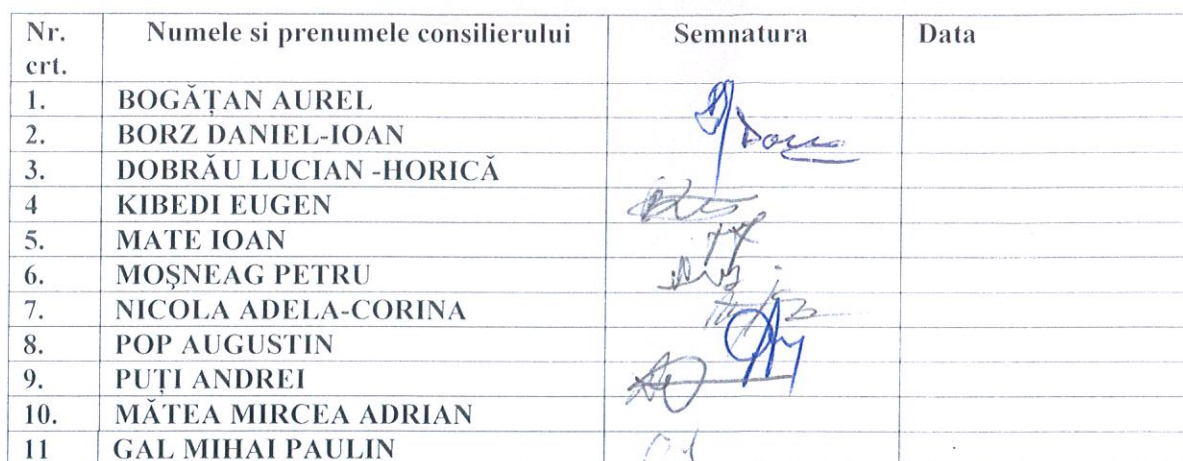 Nr. Numele si prenumele consilierului Semnatura Data
crt.
1. BOGĂȚAN AUREL
2. BORZ DANIEL-IOAN
3. DOBRĂU LUCIAN -HORICĂ
4 KIBEDI EUGEN
5. MATE IOAN
6. MOȘNEAG PETRU
7. NICOLA ADELA-CORINA
8. POP AUGUSTIN
9. PUȚI ANDREI
10. MĂTEA MIRCEA ADRIAN
11 GAL MIHAI PAULIN